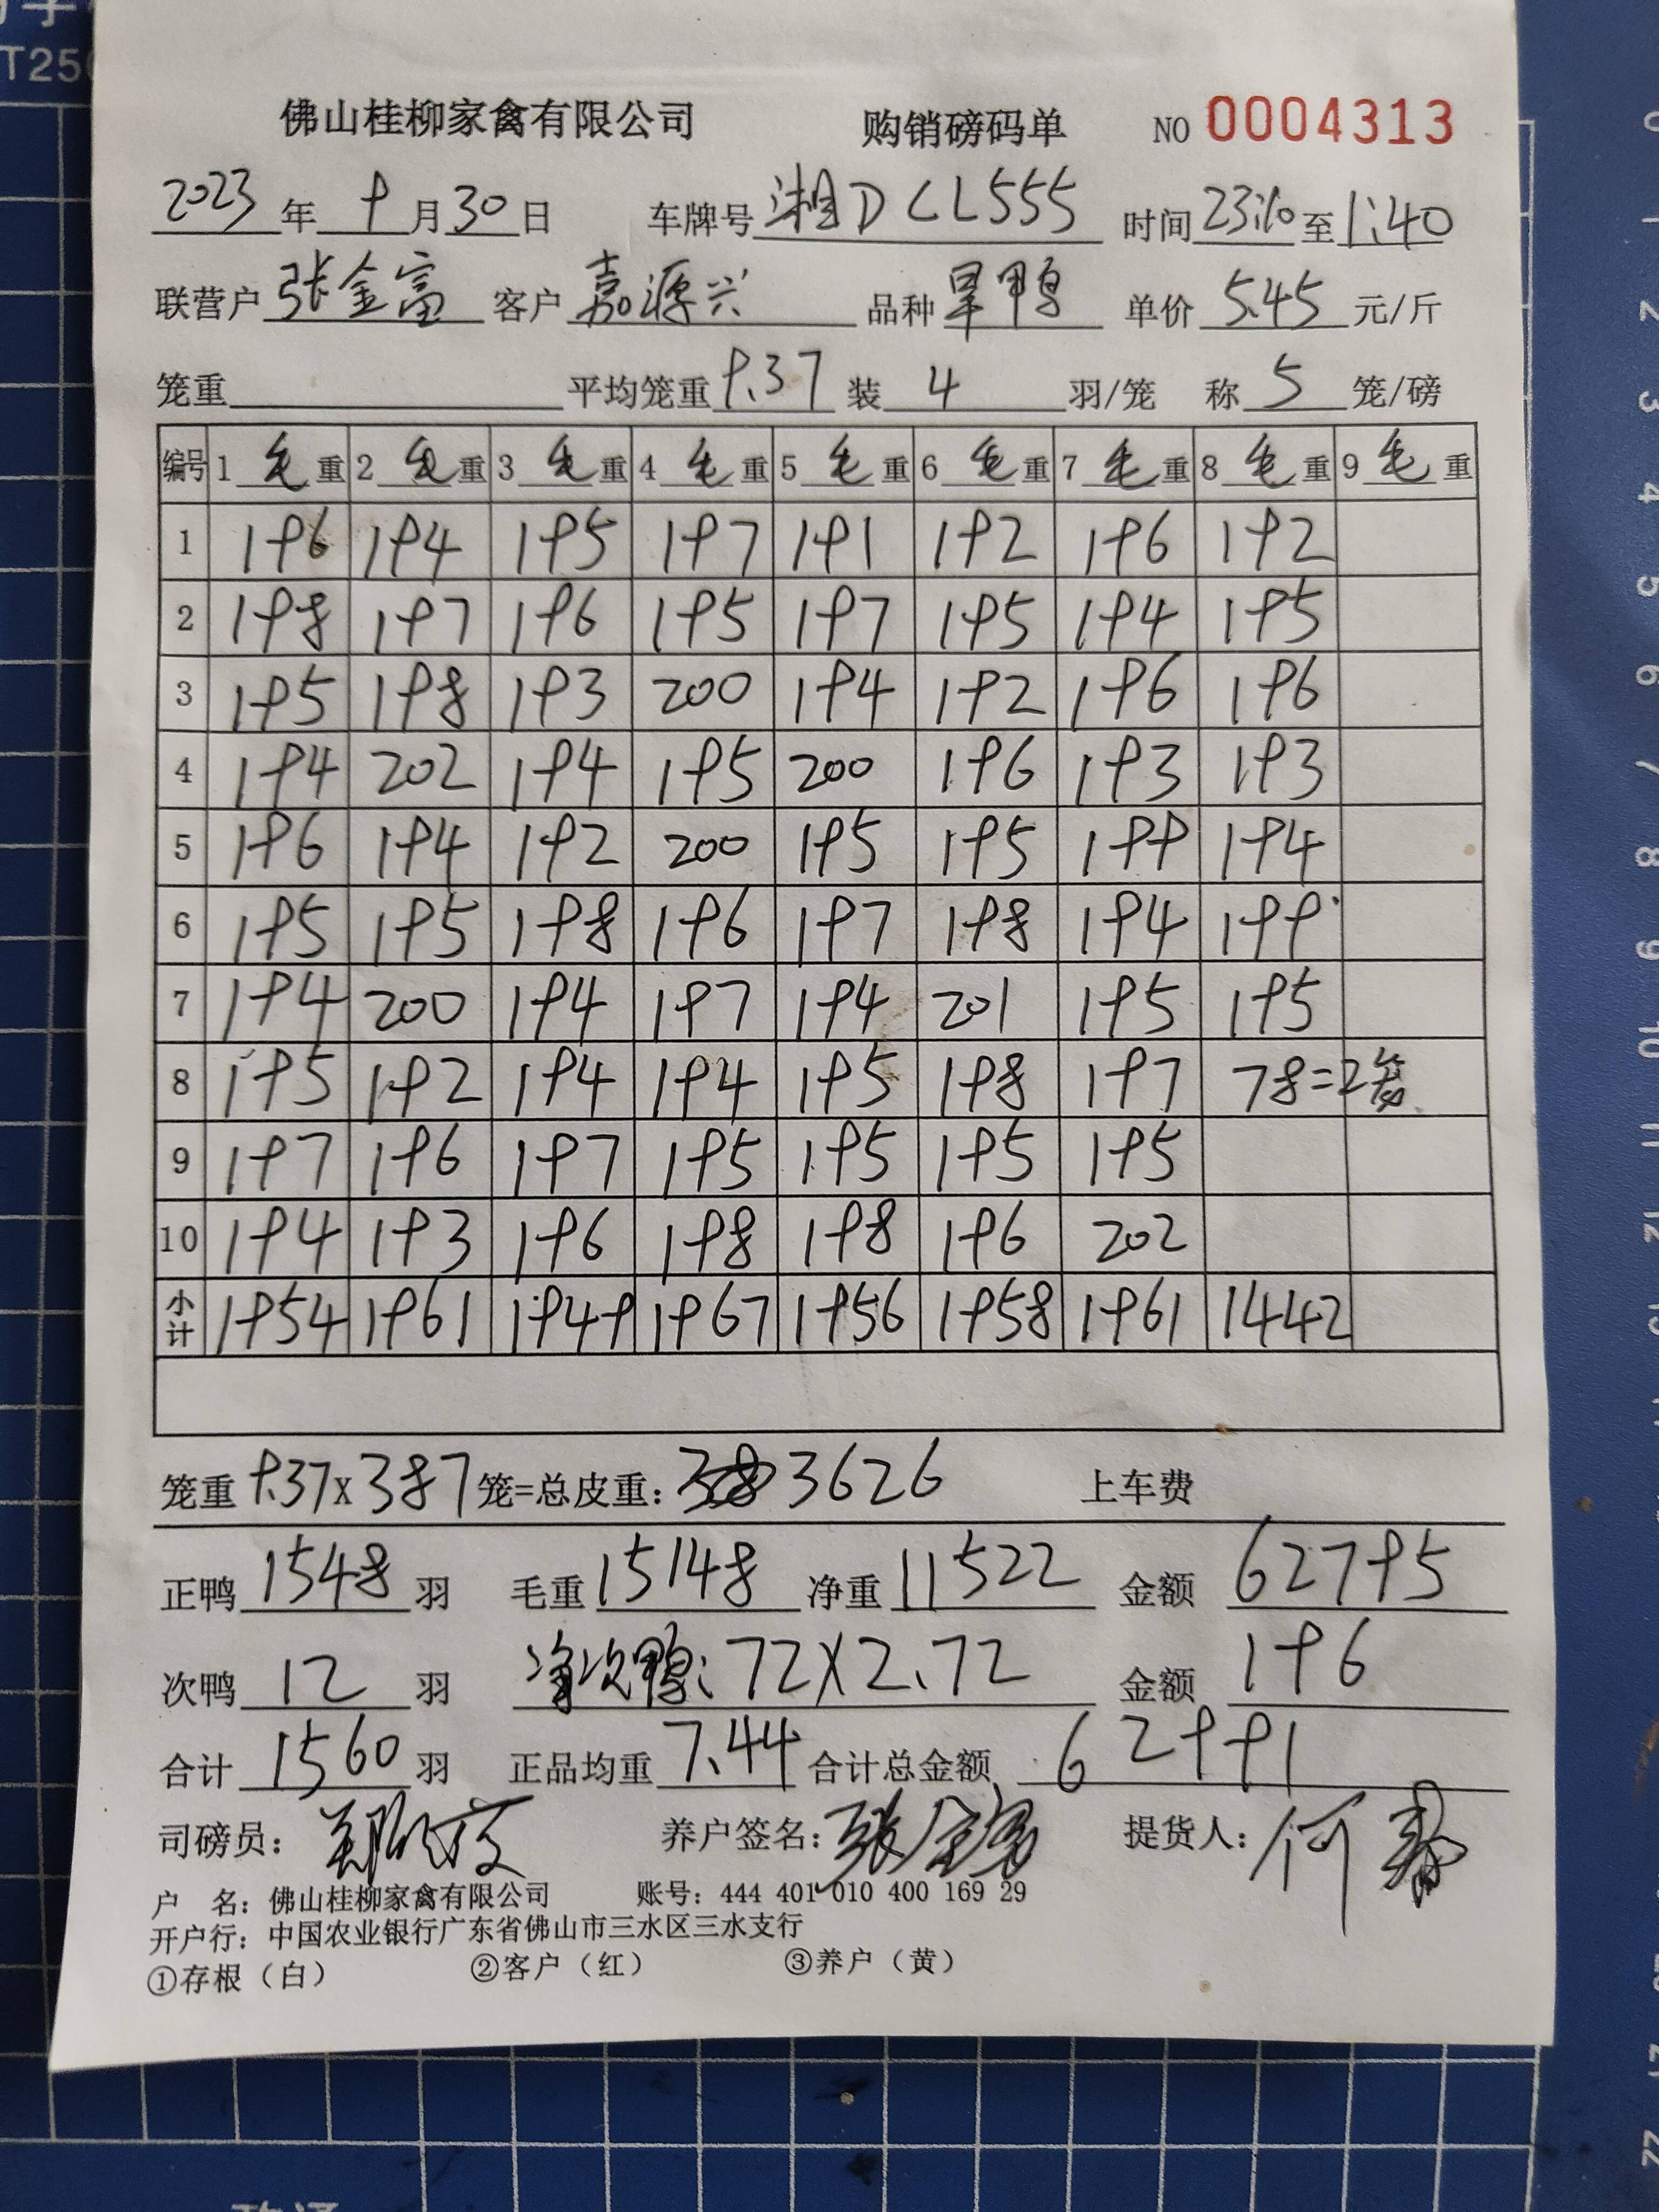 佛山桂柳家禽有限公司 购销磅码单 NO 0004313
2023 年 9 月 30 日 车牌号 湘DCL555 时间 23:10 至 1:40
联营户 张金富 客户 嘉源兴 品种 旱鸭 单价 5.45 元/斤
笼重 平均笼重 9.37 装 4 羽/笼 称 5 笼/磅
编号 1 毛 重 2 毛 重 3 毛 重 4 毛 重 5 毛 重 6 毛 重 7 毛 重 8 毛 重 9 毛 重
1 196 194 195 197 191 192 196 192
2 198 197 196 195 197 195 194 195
3 195 198 193 200 194 192 196 196
4 194 202 194 195 200 196 193 193
5 196 194 192 200 195 195 199 194
6 195 195 198 196 197 198 194 199
7 194 200 194 197 194 201 195 195
8 195 192 194 194 195 198 197 78=2笼
9 197 196 197 195 195 195 195
10 194 193 196 198 198 196 202
小计 1954 1961 1949 1967 1956 1958 1961 1442
笼重 9.37x387 笼=总皮重: 3626 上车费
正鸭 1548 羽 毛重 15148 净重 11522 金额 62795
次鸭 12 羽 净次鸭: 72X2.72 金额 196
合计 1560 羽 正品均重 7.44 合计总金额 62991
司磅员: 养户签名: 张金富 提货人: 何
户 名: 佛山桂柳家禽有限公司 账号: 444 401 010 400 169 29
开户行: 中国农业银行广东省佛山市三水区三水支行
①存根（白） ②客户（红） ③养户（黄）